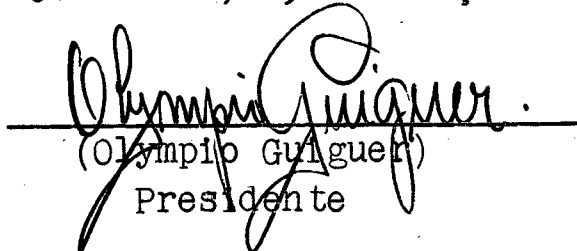 Olympio Guiguer.
(Olympio Guiguer)
Presidente